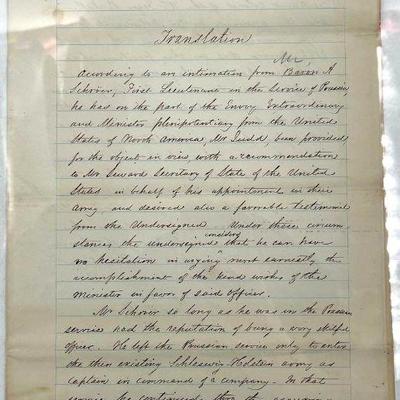 Translation
Mr
Acording to an intimation from Baron A
Schröer, First Lieutenant in the Service of Prussia
he has on the part of the Envoy Extraordinary
and Minister plenipotentiary from the United
States of North America, Mr Judd, been provided
for the object in view, with a recommendation
to Mr Seward Secretary of State of the United
States in behalf of his appointment in their
Army, and desired also a favorable testimonial
from the Undersigned. Under these circum-
stances the undersigned that he can have
no hesitation in urging most earnestly the
accomplishment of the kind wishes of the
Minister in favor of said officer.
Mr Schröer so long as he was in the Prussian
service had the reputation of being a very skilful
officer. He left the Prussian service only to enter
the then existing Schleswig-Holstein army as
captain in command of a company. In that
service he continued